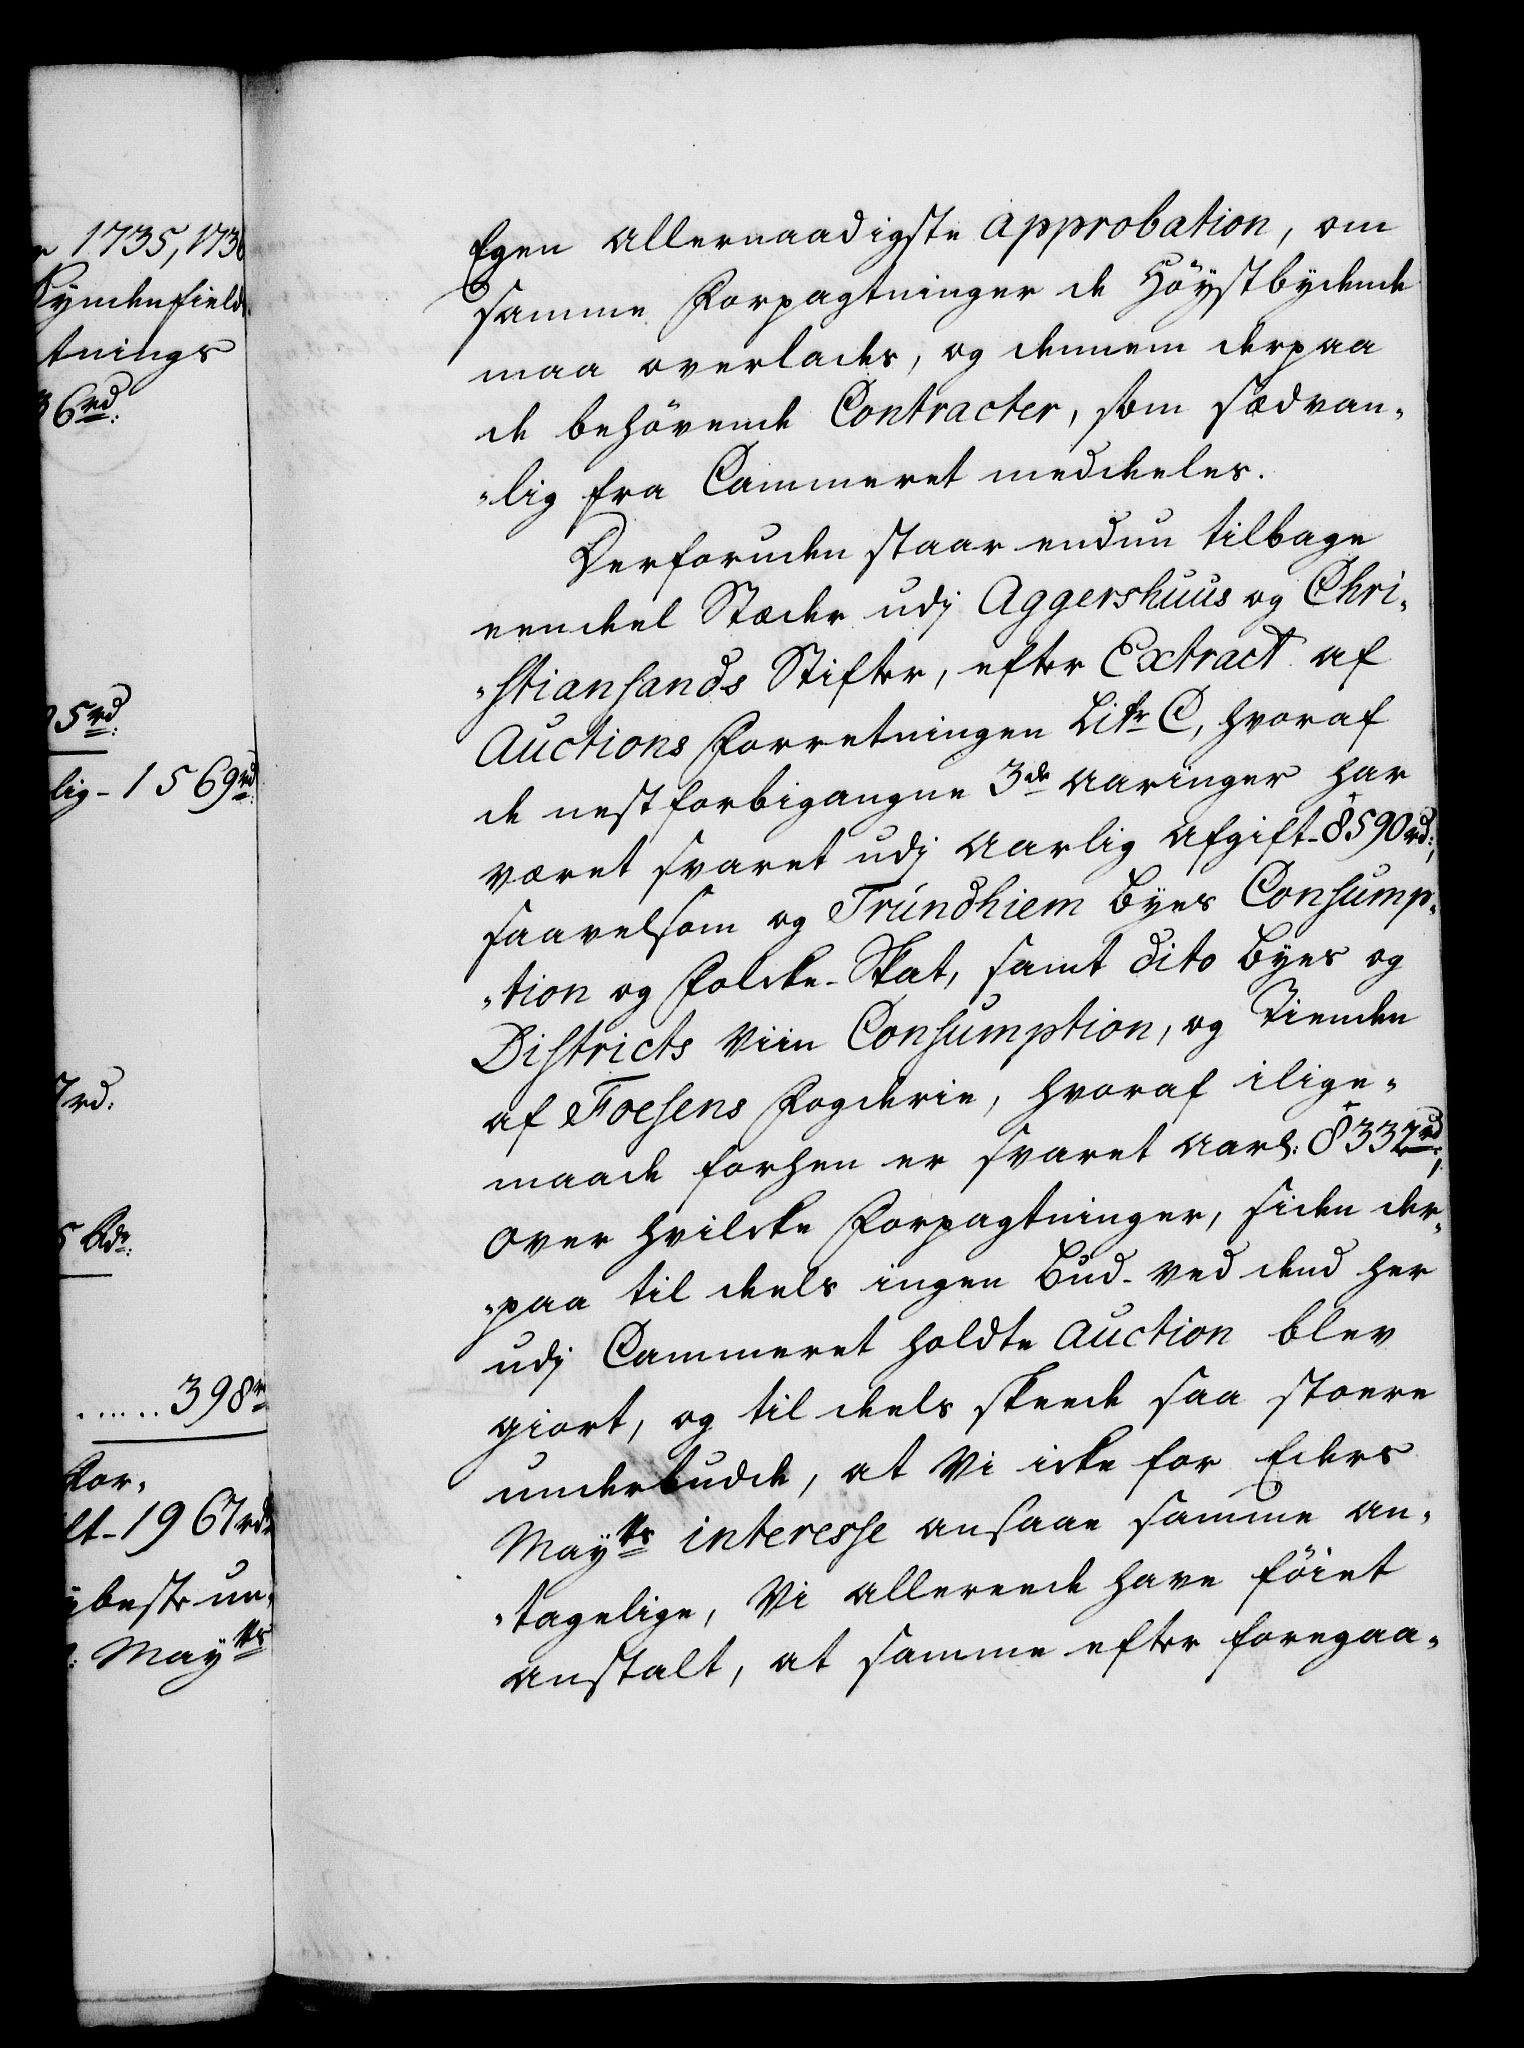 r 1735, 1736
Syndenfield
tnings
36rd:
5rd:
lig - 1569rd
7rd:
5 Rdr:
...... 398r
For-
lt - 1967rdr
ybeste un-
: Mayts
Egen allernaadigste approbation, om
samme Forpagtninger de Höystbydende
maa overlades, og dennem derpaa
de behövende Contracter, som sædvan-
-lig fra Cammeret meddeeles.
Derforuden staar endnu tilbage
eendeel Stæder udj Aggershuus og Chri-
-stiansands Stifter, efter Extract af
Auctions Forretningen Litr C, hvoraf
de nestforbigangne 3de Aaringer har
været svaret udj Aarlig Afgift - 8590rd:,
saavelsom og Trundhiem Byes Consump-
-tion og Folcke-Skat, samt dito Byes og
Districts Viin Consumption, og Tienden
af Foesens Fogderie, hvoraf ilige-
maade forhen er svaret Aarl: 8332rd,
over hvilcke Forpagtninger, siden der-
-paa til deels ingen Bud ved dend her
udj Cammeret holdte Auction blev
giort, og til deels skeede saa stoere
underbudde, at Vi icke for Eders
Mayts interesse ansaae samme an-
-tagelige, Vi allereede have föiet
anstalt, at samme efter foregaa-